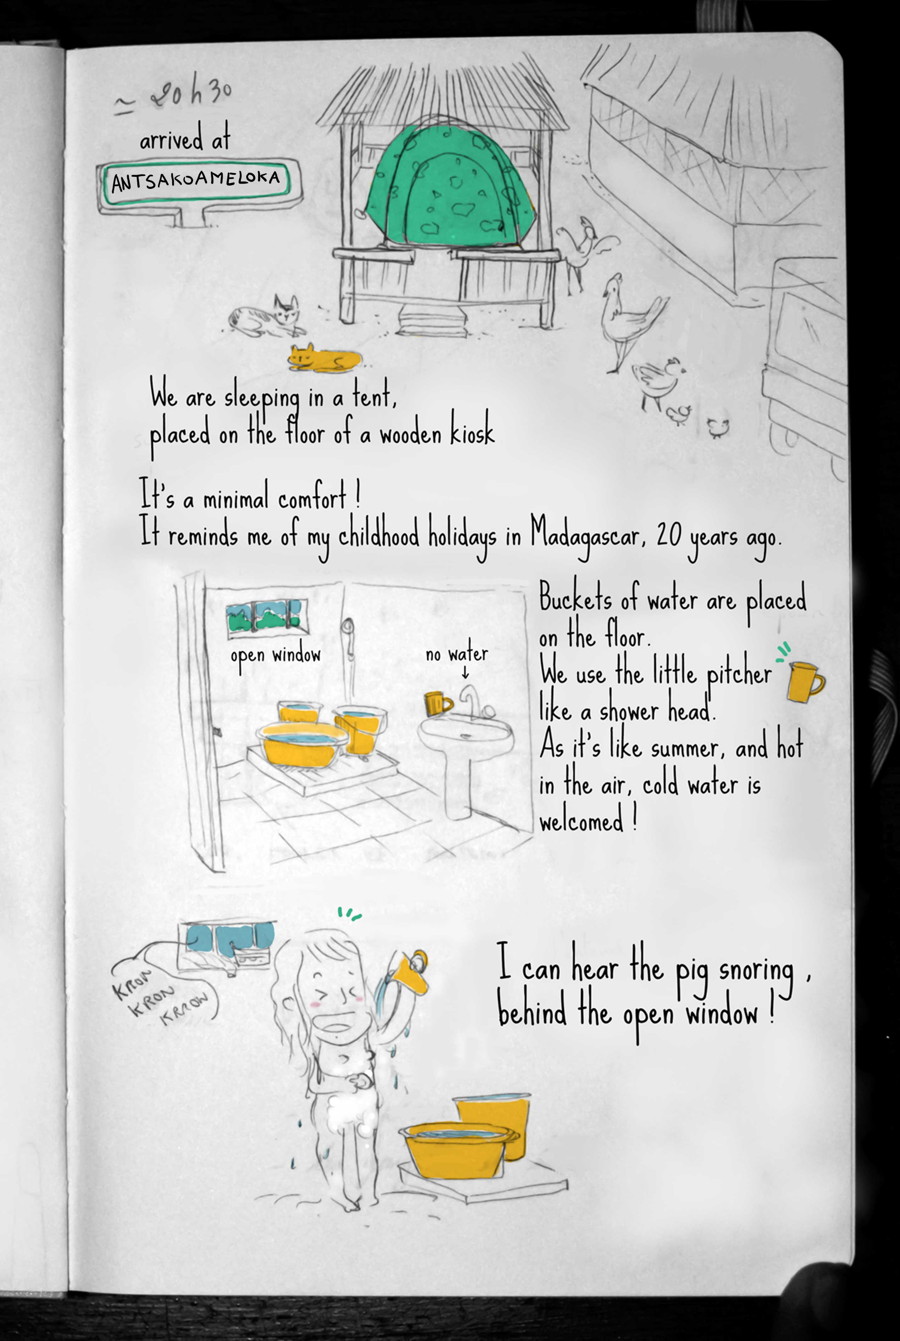 ≃ 20h30
arrived at
ANTSAKOAMELOKA
We are sleeping in a tent,
placed on the floor of a wooden kiosk
It's a minimal comfort !
It reminds me of my childhood holidays in Madagascar, 20 years ago.
open window
no water
Buckets of water are placed
on the floor.
We use the little pitcher
like a shower head.
As it's like summer, and hot
in the air, cold water is
welcomed !
KRON
KRON
KRROW
I can hear the pig snoring ,
behind the open window !